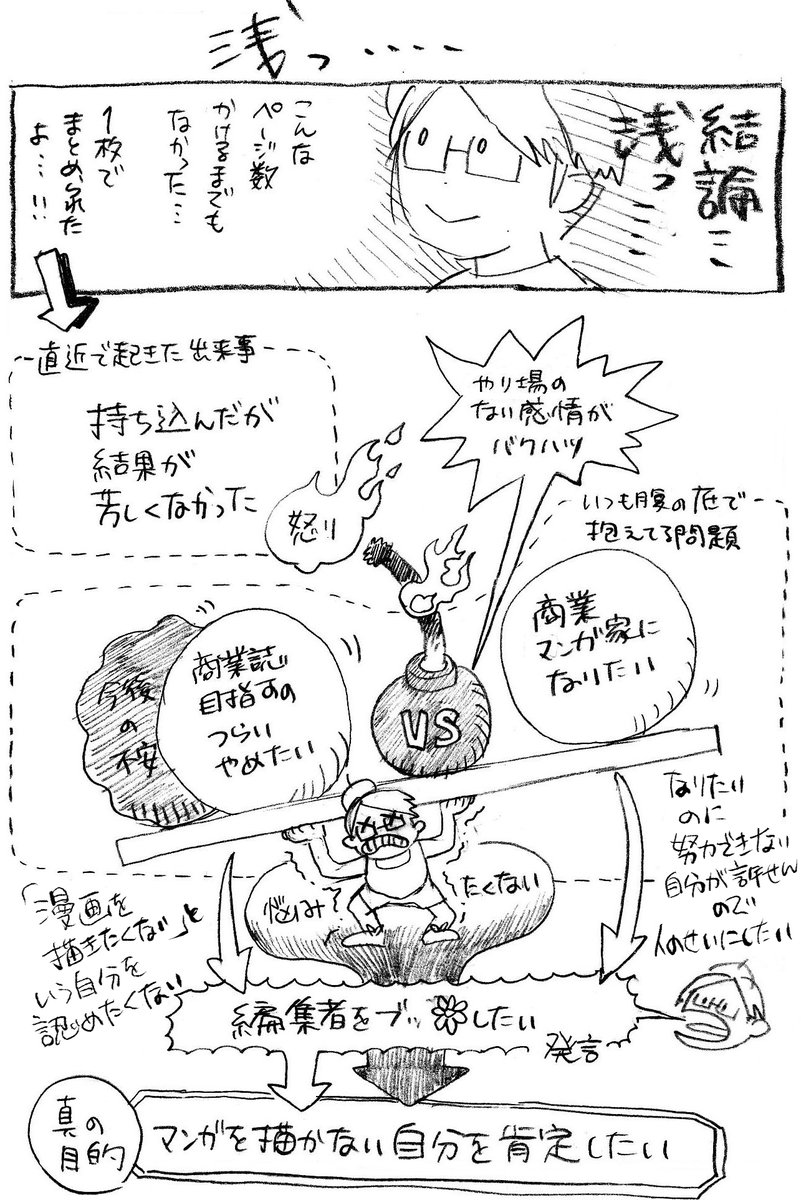 浅っ‥‥
結論…
浅っ……
こんな
ページ数
かけるまでも
なかった…
1枚で
まとめられた
よ…!!
直近で起きた出来事
持ち込んだが
結果が
芳しくなかった
怒り
やり場の
ない感情が
バクハツ
いつも腹の底で
抱えてる問題
商業
マンガ家に
なりたい
VS
商業誌
目指すの
つらい
やめたい
今後
の
不安
悩み
たくない
なりたい
のに
努力できない
自分が許せん
ので
人のせいにしたい
「漫画を
描きたくない」と
いう自分を
認めたくない
編集者をブッ❀したい
発言
真の
目的
マンガを描かない自分を肯定したい